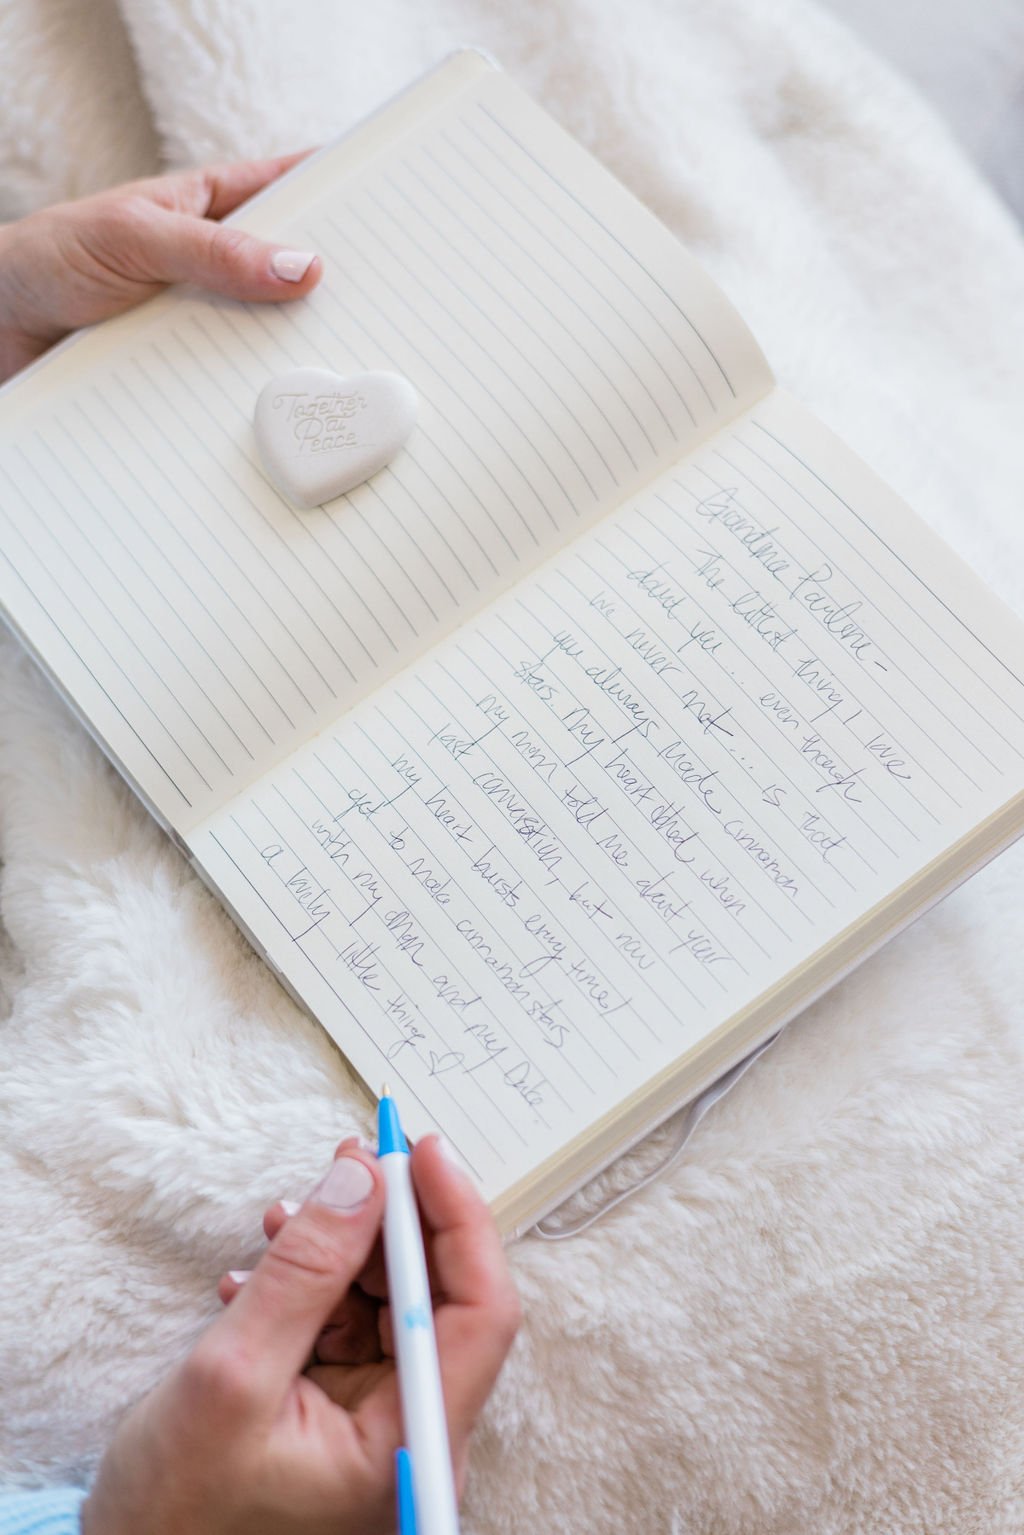 Together
at
Peace
Grandma Pauline -
The littlest thing I love
about you... even though
we never met... is that
you always made cinnamon
stars. My heart ached when
my mom told me about your
last conversation, but now
my heart bursts every time I
get to make cinnamon stars
with my mom and my Duke.
a lovely little thing ♡